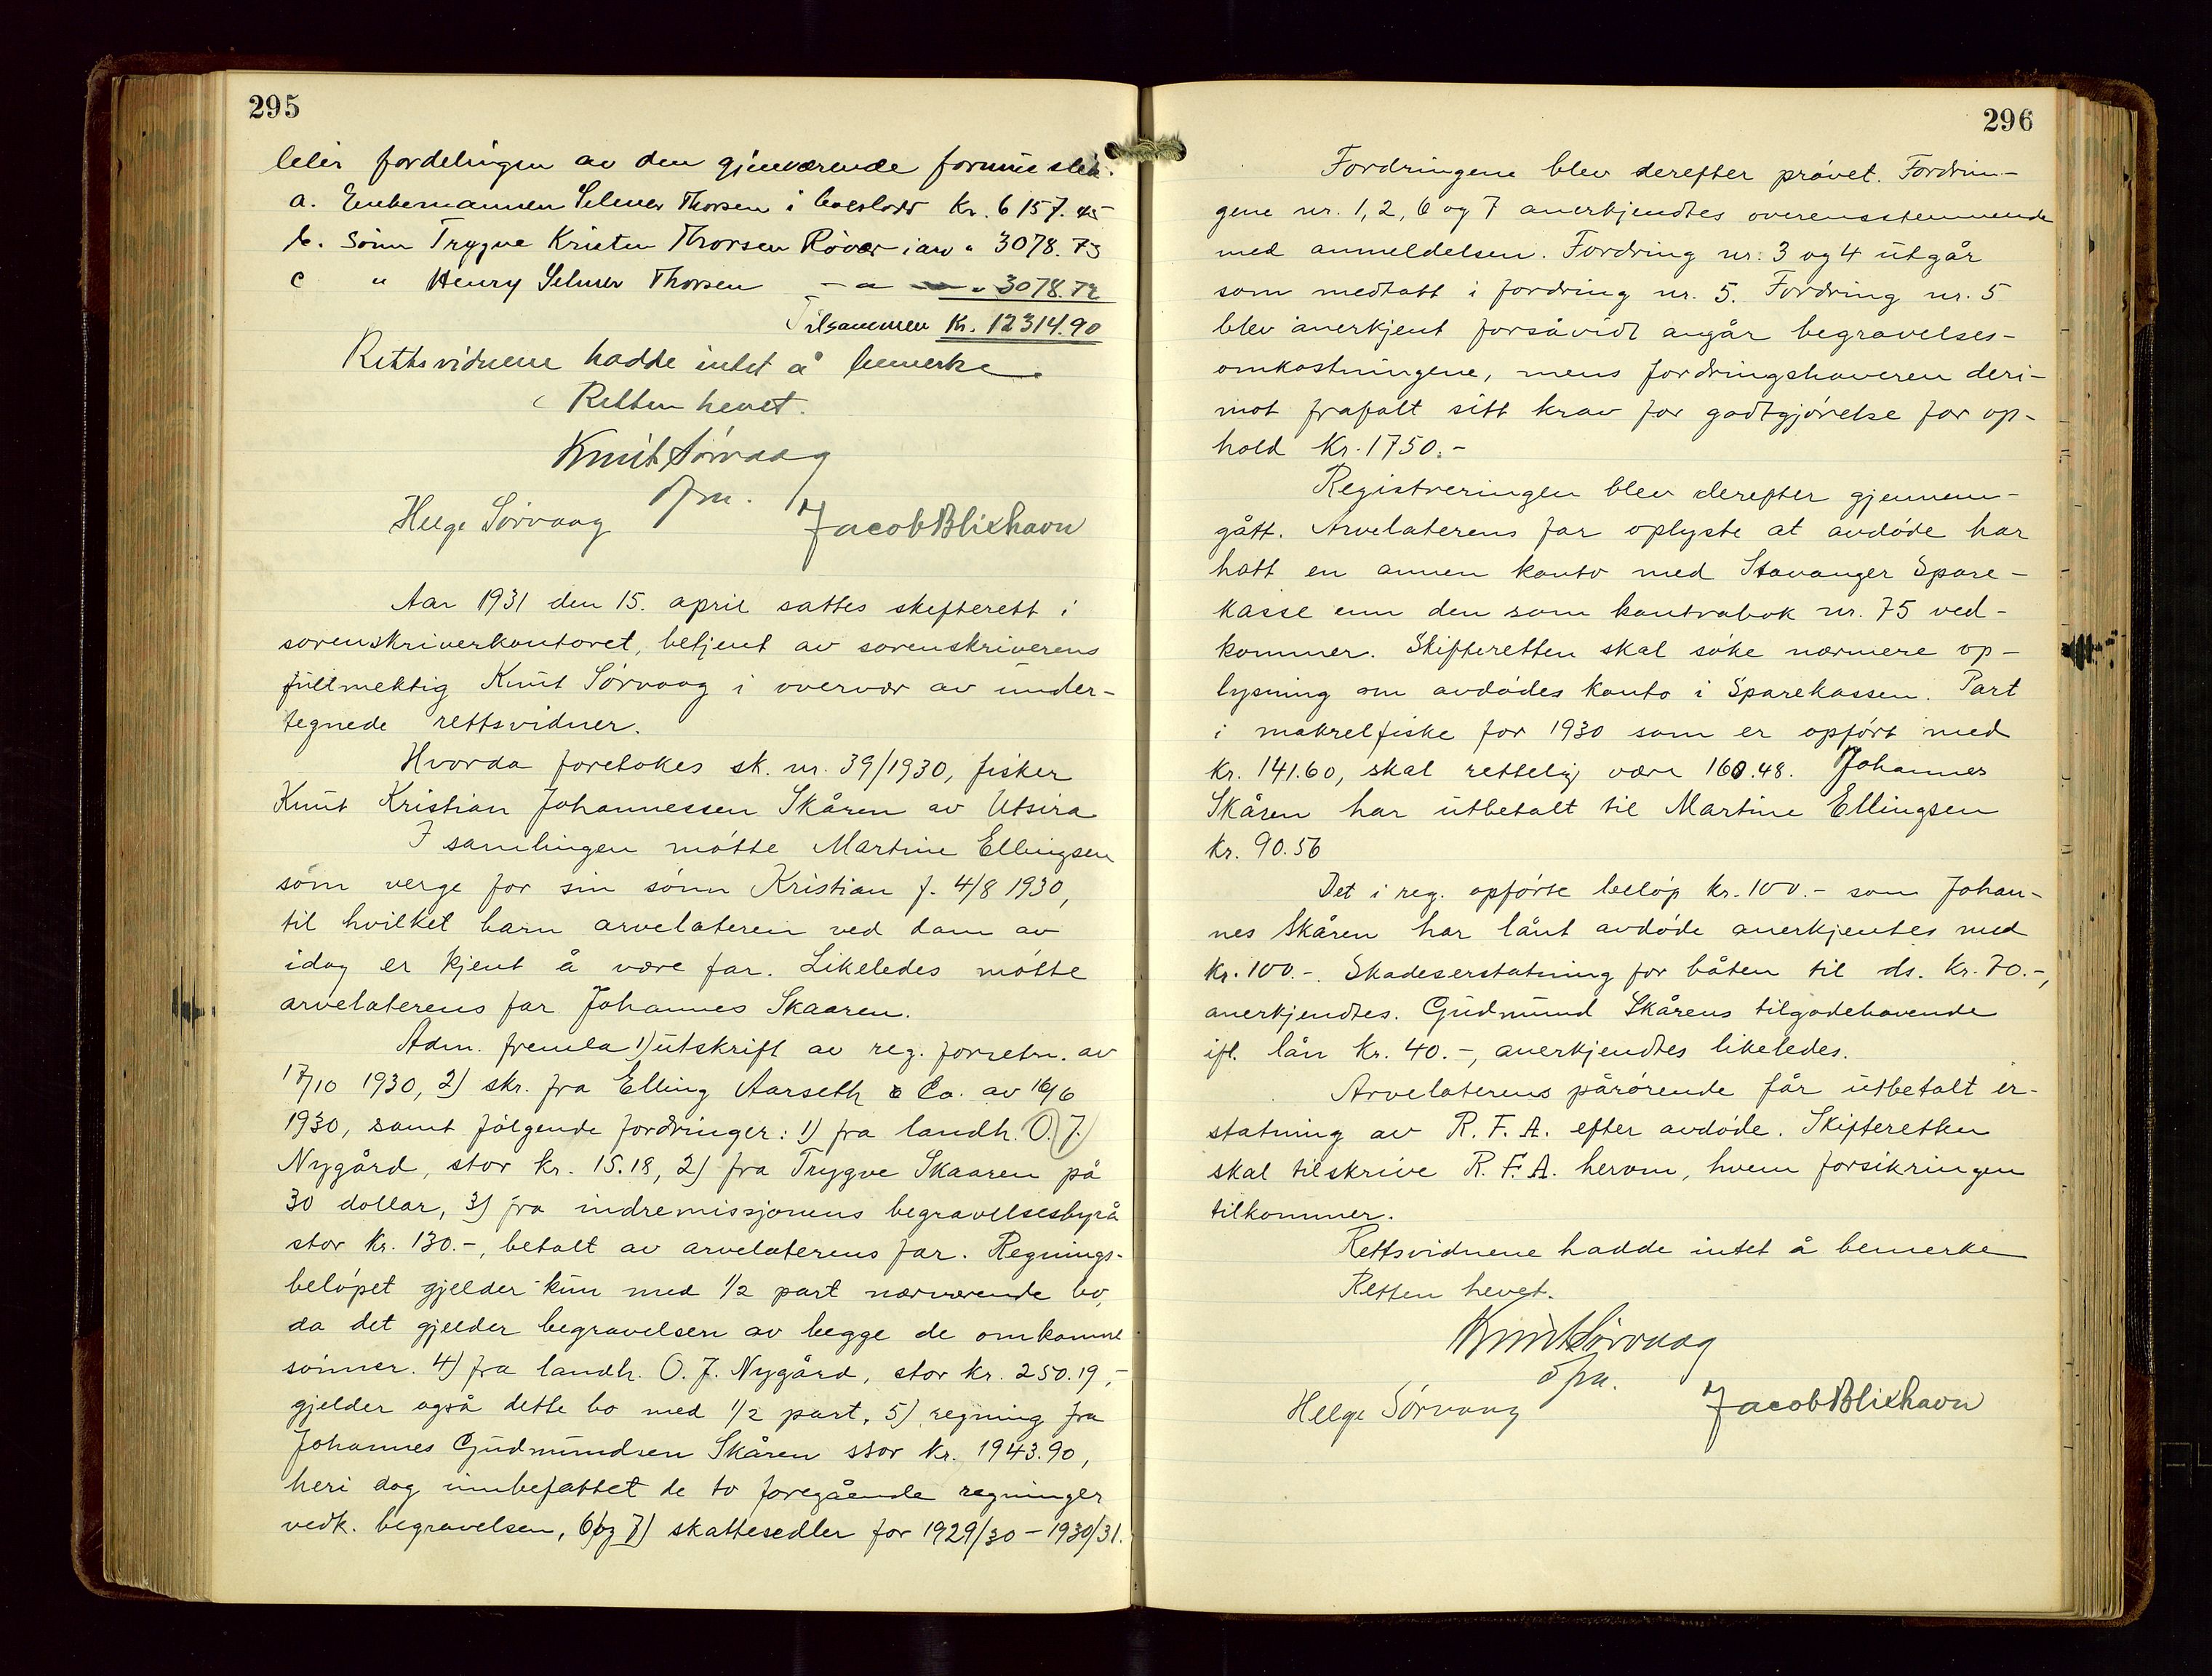 295
blir fordelingen av den gjenværende formue slik:
a. Enkemannen Selmer Thorsen i boslodd Kr. 6157.45
b. Sønn Trygve Kristen Thorsen Røvær i arv " 3078.73
c " Henry Selmer Thorsen - " - " 3078.72
Tilsammen Kr. 12314.90
Rettsvidnene hadde intet å bemerke
Retten hevet.
Knut Sørvaag
ofm.
Helge Sørvaag Jacob Blixhavn
Aar 1931 den 15. april sattes skifterett i
sorenskriverkontoret, betjent av sorenskriverens
fullmektig Knut Sørvaag i overvær av under-
tegnede rettsvidner.
Hvorda foretokes sk. nr. 39/1930, fisker
Knut Kristian Johannessen Skåren av Utsira
I samlingen møtte Martine Ellingsen
som verge for sin sønn Kristian f. 4/8 1930,
til hvilket barn arvelateren ved dom av
idag er kjent å være far. Likeledes møtte
arvelaterens far Johannes Skaaren.
Adm. fremla 1) utskrift av reg. forretn. av
17/10 1930, 2) skr. fra Elling Aarseth & Co. av 16/6
1930, samt følgende fordringer: 1) fra landh. O. J.
Nygård, stor kr. 15.18, 2) fra Trygve Skaaren på
30 dollar, 3) fra indremissjonens begravelsesbyrå
stor kr. 130.-, betalt av arvelaterens far. Regnings-
beløpet gjelder kun med 1/2 part nærværende bo,
da det gjelder begravelsen av begge de omkomne
sønner. 4) fra landh. O. J. Nygård, stor kr. 250.19,-
gjelder også dette bo med 1/2 part, 5) regning fra
Johannes Gudmundsen Skåren stor kr. 1943.90,
heri dog innbefattet de to foregående regninger
vedk. begravelsen, 6) og 7) skattesedler for 1929/30 - 1930/31.
296
Fordringene blev derefter prøvet. Fordrin-
gene nr. 1, 2, 6 og 7 anerkjendtes overensstemmende
med anmeldelsen. Fordring nr. 3 og 4 utgår
som medtatt i fordring nr. 5. Fordring nr. 5
blev anerkjent forsåvidt angår begravelses-
omkostningene, mens fordringshaveren deri-
mot frafalt sitt krav for godtgjørelse for op-
hold Kr. 1750.-
Registreringen blev derefter gjennem-
gått. Arvelaterens far oplyste at avdøde har
hatt en annen konto med Stavanger Spare-
kasse enn den som kontrabok nr. 75 ved-
kommer. Skifteretten skal søke nærmere op-
lysning om avdødes konto i Sparekassen. Part
i makrelfiske for 1930 som er opført med
Kr. 141.60, skal rettelig være 160.48. Johannes
Skåren har utbetalt til Martine Ellingsen
kr. 90.56
Det i reg. opførte beløp kr. 100.- som Johan-
nes Skåren har lånt avdøde anerkjentes med
kr. 100.-. Skadeserstatning for båten til ds. Kr. 70.-,
anerkjendtes. Gudmund Skårens tilgodehavende
ifl. lån kr. 40.-, anerkjendtes likeledes.
Arvelaterens pårørende får utbetalt er-
statning av R. F. A. efter avdøde. Skifteretten
skal tilskrive R. F. A. herom, hvem forsikringen
tilkommer.
Rettsvidnene hadde intet å bemerke
Retten hevet.
Knut Sørvaag
ofm.
Helge Sørvaag Jacob Blixhavn